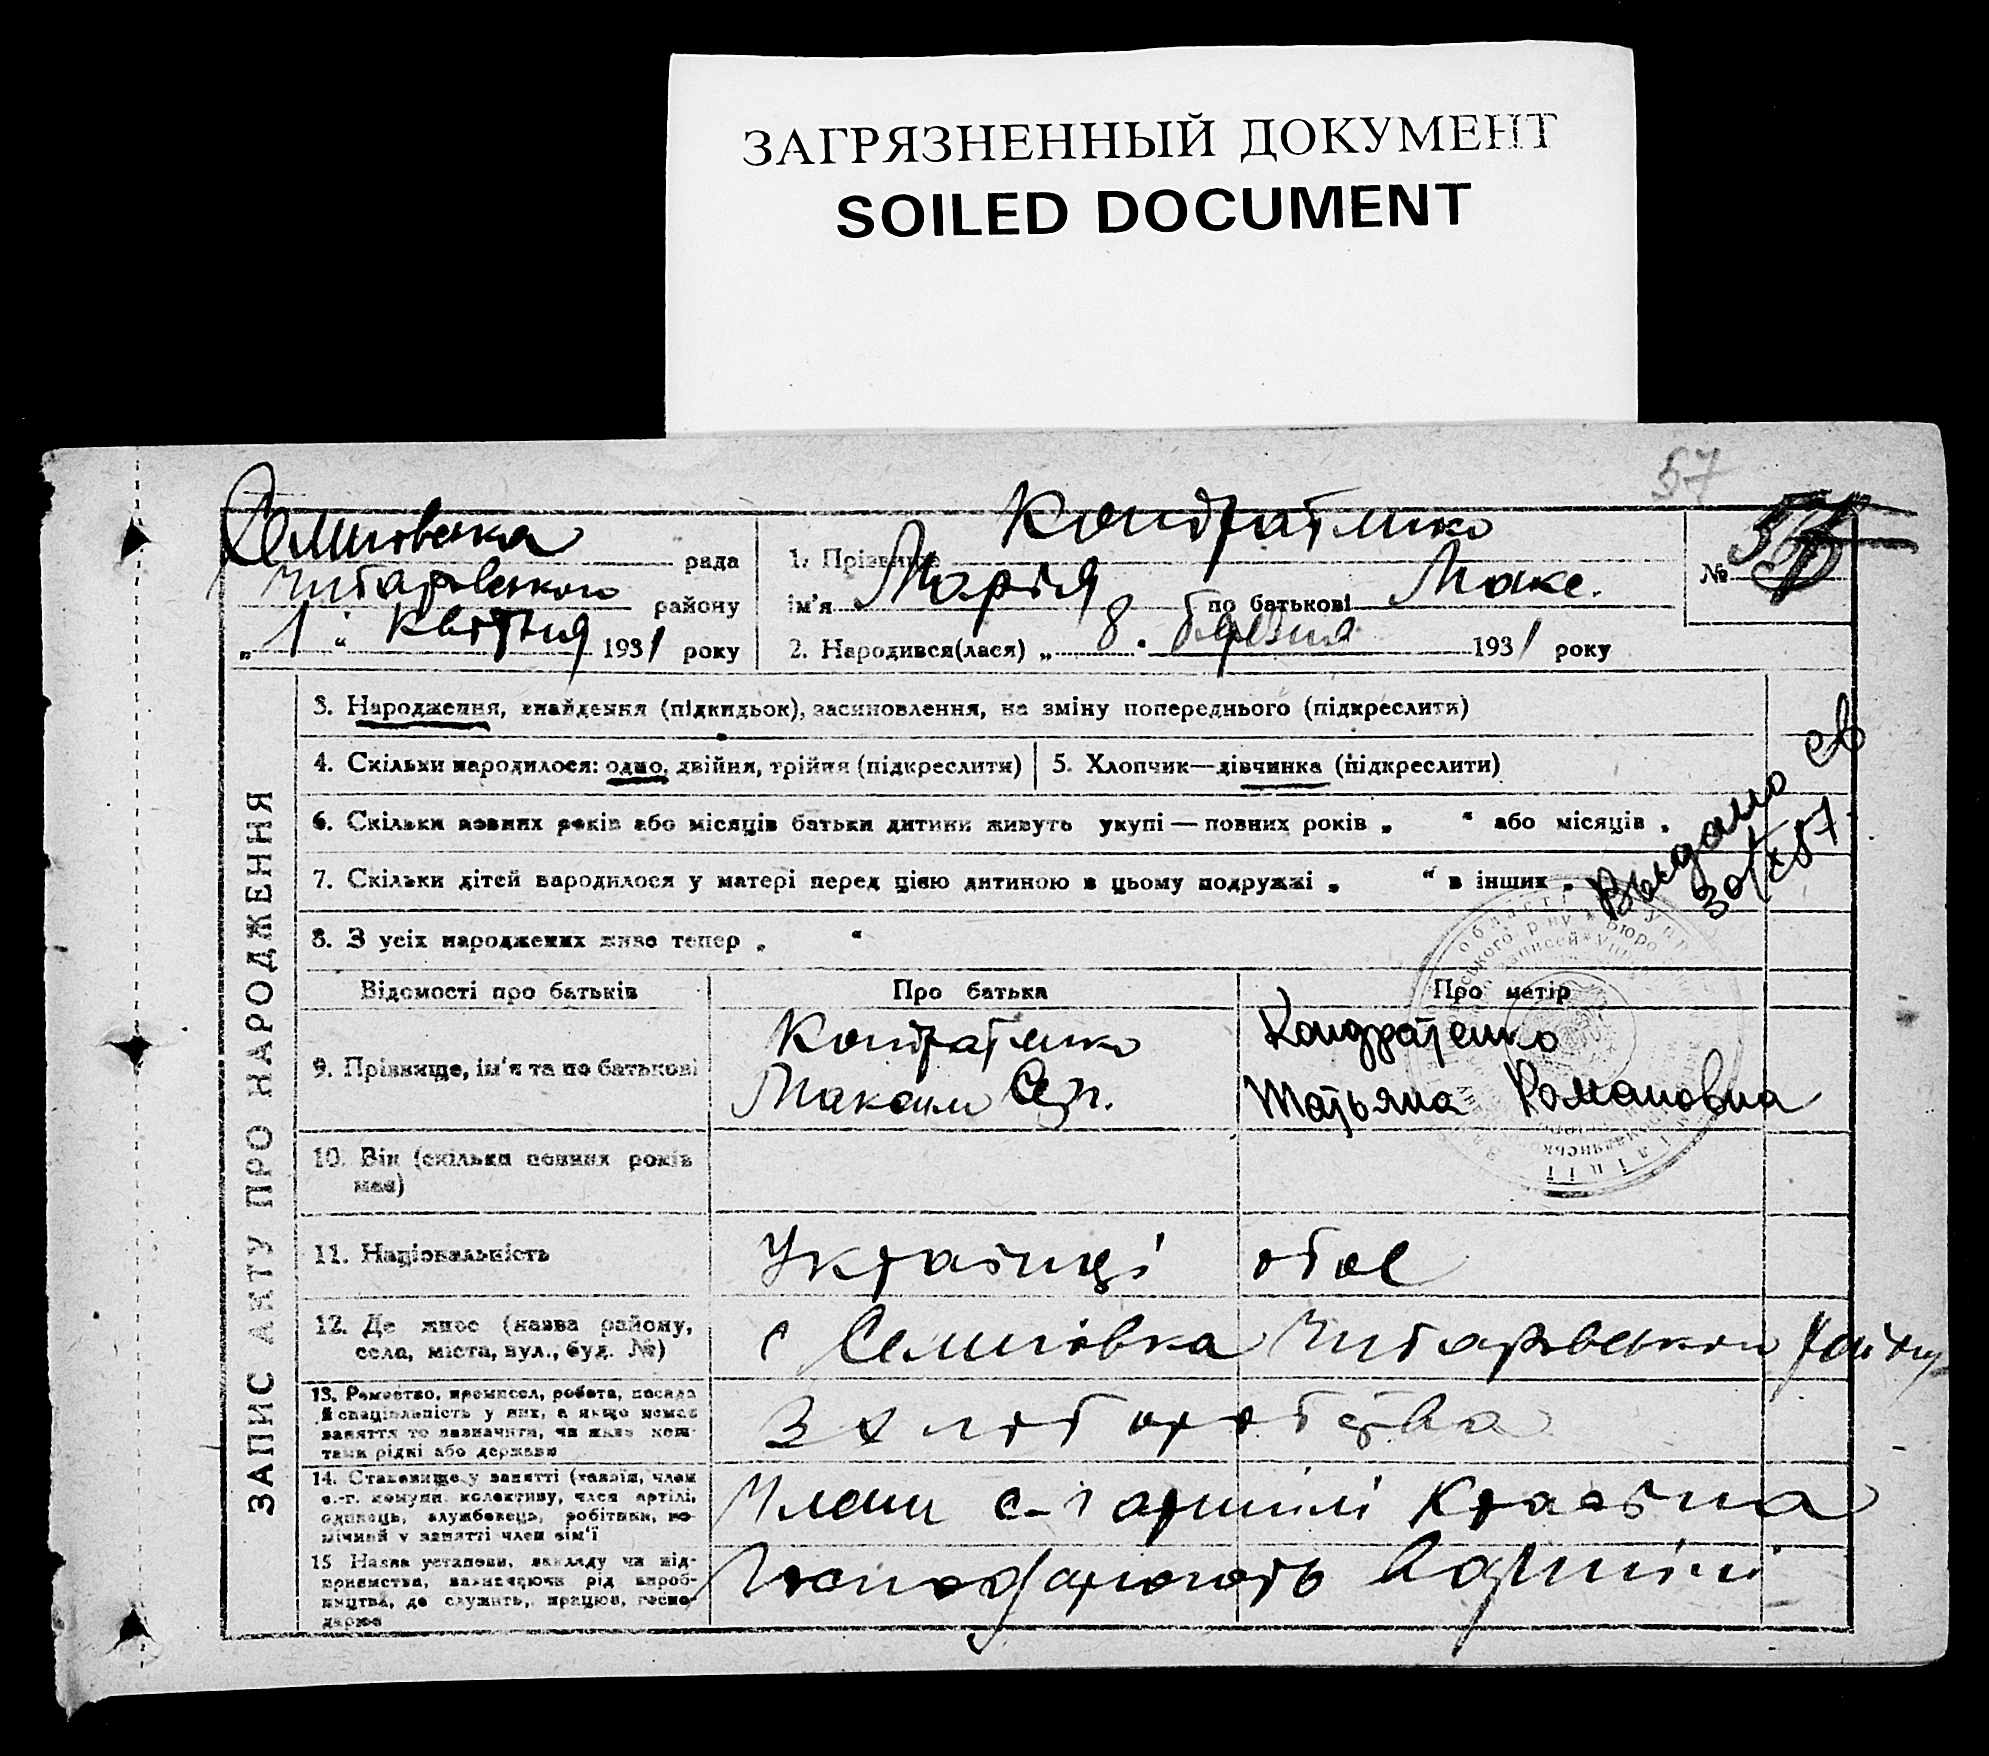 ЗАГРЯЗНЕННЫЙ ДОКУМЕНТ
SOILED DOCUMENT
57
Семенівська рада
району
„ 1 “ квітня 1931 року
1. Прізвище Кондратенко
ім'я Марія по батькові Макс.
2. Народився(лася) „ 8 “ березня 1931 року
№
ЗАПИС АКТУ ПРО НАРОДЖЕННЯ
3. Народження, знайдення (підкидьок), засиновлення, на зміну попереднього (підкреслити)
4. Скільки народилося: одно, двійня, трійня (підкреслити)
5. Хлопчик—дівчинка (підкреслити)
6. Скільки повних років або місяців батьки дитини живуть укупі — повних років „ “ або місяців „
7. Скільки дітей народилося у матері перед цією дитиною в цьому подружжі „ “ в інших „
8. З усіх народжених живе тепер „ “
Выдано св
30/X 87
Відомості про батьків
Про батька
Про матір
9. Прізвище, ім'я та по батькові
Кондратенко
Максим
Кондратенко
Татьяна Романовна
10. Вік (скільки повних років має)
11. Національність
Українці обоє
12. Де живе (назва району,
села, міста, вул., буд. №)
с
району
13. Ремество, промисел, робота, посада
й спеціальність у них, а якщо немає
заняття то зазначити, чи живе кош-
тами рідні або держави
З хліборобства
14. Становище у занятті (хазяїн, член
с.-г. комуни, колективу, член артілі,
одинець, службовець, робітник, по-
мічний у занятті член сім'ї
Члени с-г артілі
15. Назва установи, закладу чи під-
приємства, зазначаючи рід вироб-
ництва, де служить, працює, госпо-
дарює
Господарюють в артілі